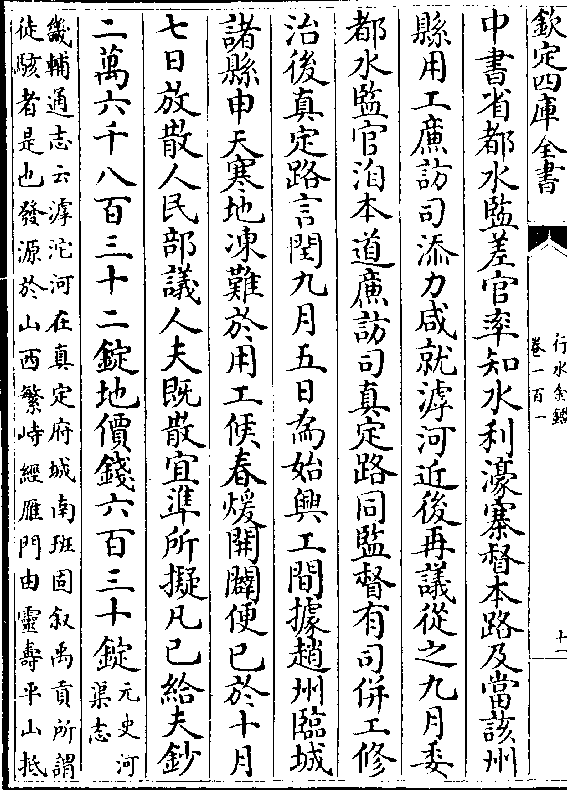 欽定四庫全書
行水金鑑
卷一百一
十一
中書省都水監差官率知水利濠寨督本路及當該州
縣用工廉訪司添力咸就滹河近後再議從之九月委
都水監官洎本道廉訪司真定路同監督有司併工修
治後真定路言閏九月五日為始興工間據趙州臨城
諸縣申天寒地凍難於用工候春煖開闢便已於十月
七日放散人民部議人夫既散宜準所擬凡已給夫鈔
二萬六千八百三十二錠地價錢六百三十錠元史河
渠志
畿輔通志云滹沱河在真定府城南班固叙禹貢所謂
徒駭者是也發源於山西繁峙經雁門由靈壽平山抵